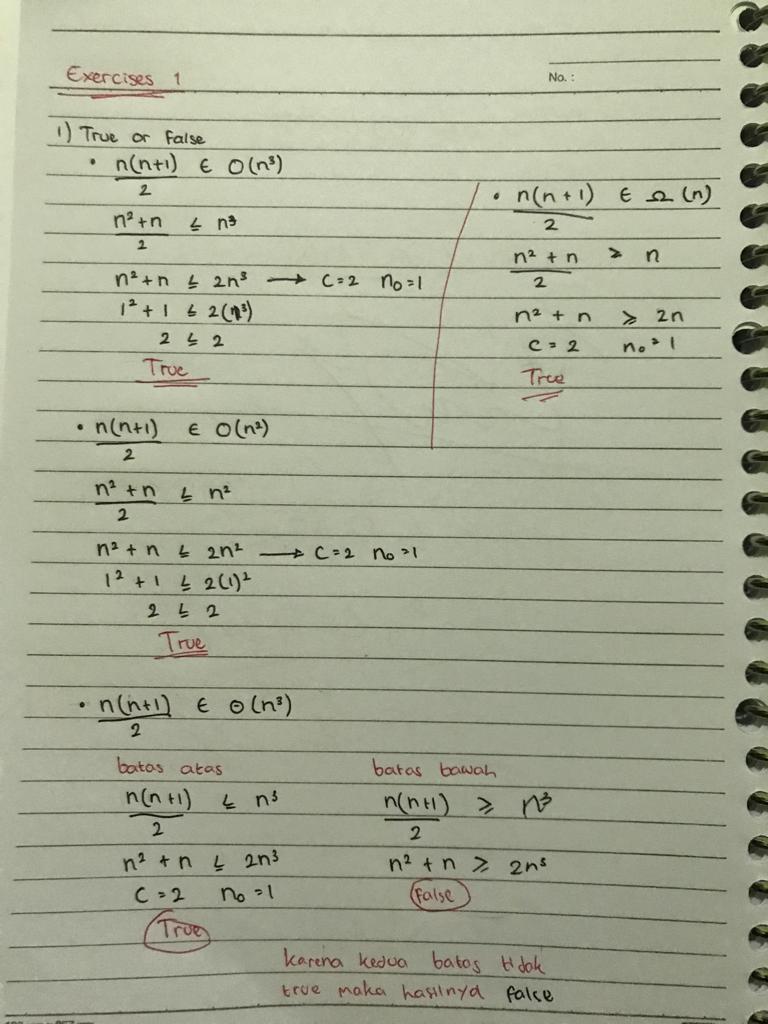 Exercises 1
No. :
1) True or False
• n(n+1)/2 ∈ O(n³)
n²+n/2 ≤ n³
n²+n ≤ 2n³ → C=2 n₀=1
1²+1 ≤ 2(1³)
2 ≤ 2
True
• n(n+1)/2 ∈ Ω(n)
n²+n/2 ≥ n
n²+n ≥ 2n
C=2 n₀=1
True
• n(n+1)/2 ∈ O(n²)
n²+n/2 ≤ n²
n²+n ≤ 2n² → C=2 n₀=1
1²+1 ≤ 2(1)²
2 ≤ 2
True
• n(n+1)/2 ∈ Θ(n³)
batas atas
n(n+1)/2 ≤ n³
n²+n ≤ 2n³
C=2 n₀=1
True
batas bawah
n(n+1)/2 ≥ n³
n²+n ≥ 2n³
False
karena kedua batas tidak
true maka hasilnya false